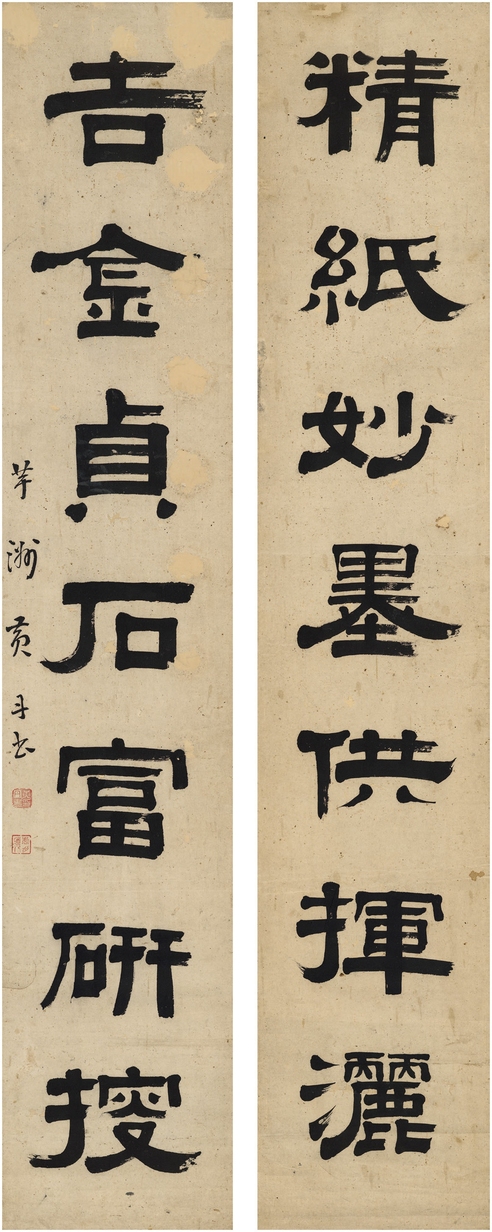 精紙妙墨供揮灑
吉金貞石富研搜
芊洲黃丹書